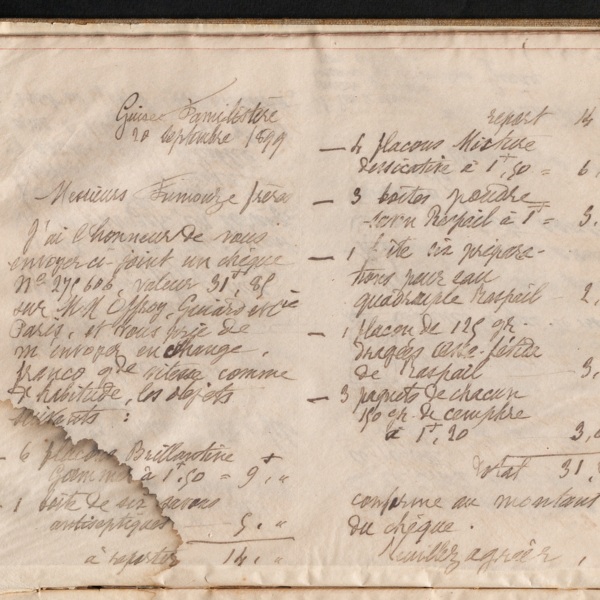 Guise Familistère
20 Septembre 1899
Messieurs Fumouze frères
J'ai l'honneur de vous
envoyer ci-joint un chèque
N° 275606, valeur 31f,85
sur MM Offroy, Guiard et Cie
Paris, et vous prie de
m'envoyer en échange,
franco gde vitesse comme
d'habitude, les objets
suivants :
- 6 flacons Brillantine
à 1f,50 = 9f "
- 1 boîte de six savons
antiseptiques 5. "
à reporter 14. "
report 14
- 4 flacons Mixture
dessicative à 1f,50 = 6,
- 3 boîtes poudre
savon Raspail à 1f = 3.
- 1 boîte six prépara-
tions pour eau
quadruple Raspail 2,
- 1 flacon de 125 gr.
dragées Assa-fétida
de Raspail 3,
- 3 paquets de chacun
150 gr. de camphre
à 1f,20 3,
Total 31,
conforme au montant
du chèque.
Veuillez agréer,